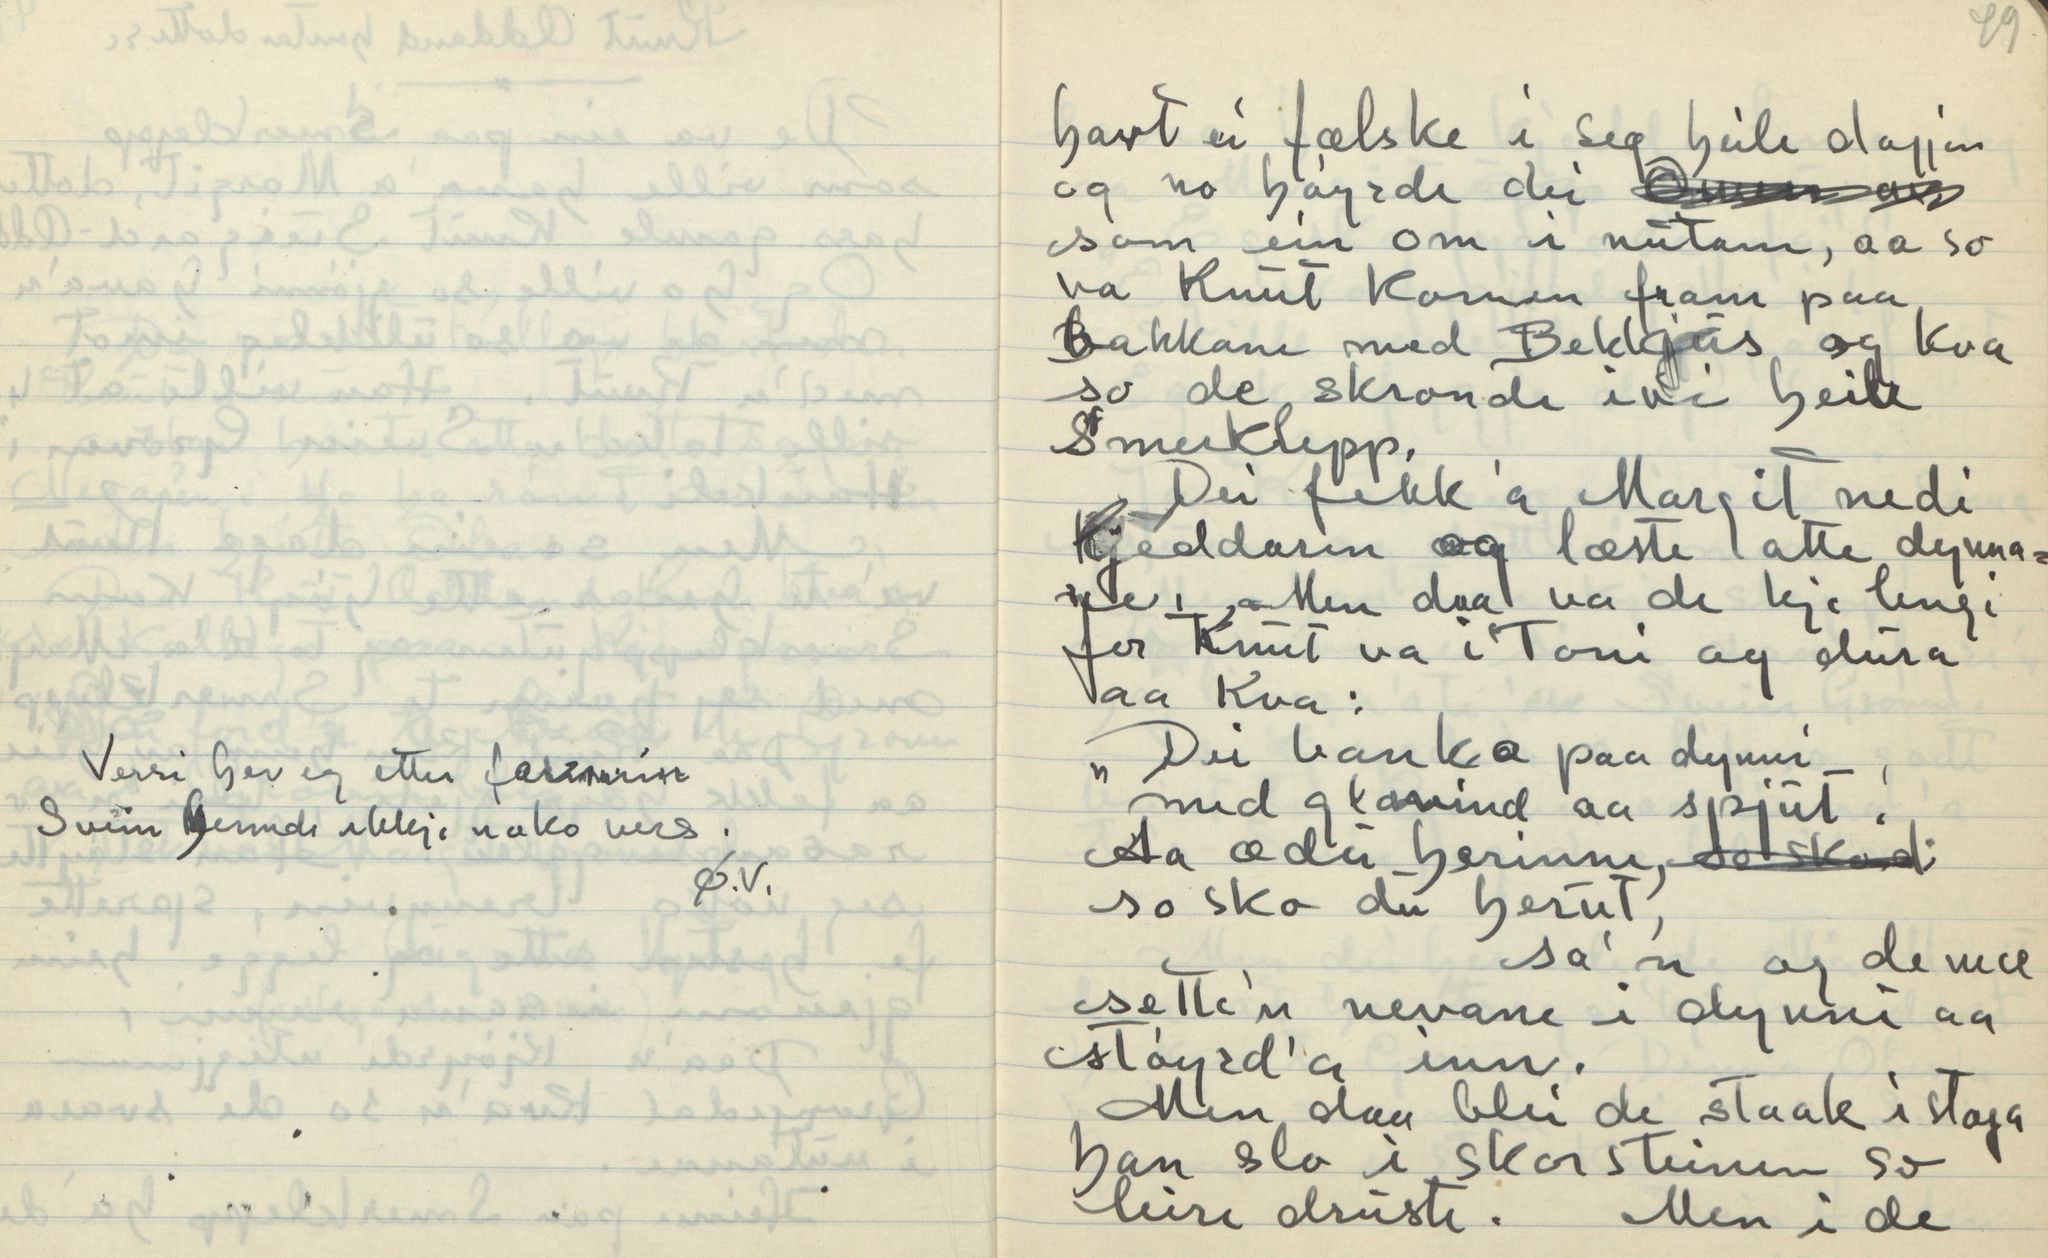 Versi hev eg etter farmorin
Svein kunde ikkje noko vers.
Ø.V.
49.
havt ei fælske i seg heile dagjin
og no höyrde dei
som ein om i nutam, aa so
va Knut komen fram paa
bakkane med Bekkjås og kva
so de skronde ivi heile
Smerklepp.
Dei fekk'a Margit nedi
Kjeddaren og læste atte dynna=
ne, Men daa va de kje lengi
for Knut va i Toni og dura
aa kva:
"Dei banka paa dynni,
med glavind aa spjut.
Aa æ du herinne, so sko d
so sko du herut,
sa'n og de mæ
sette'n nevane i dynni aa
stöyrd'a inn.
Men daa blei de staak i stoga
han slo i skorsteinen so
leire druste. Men i de